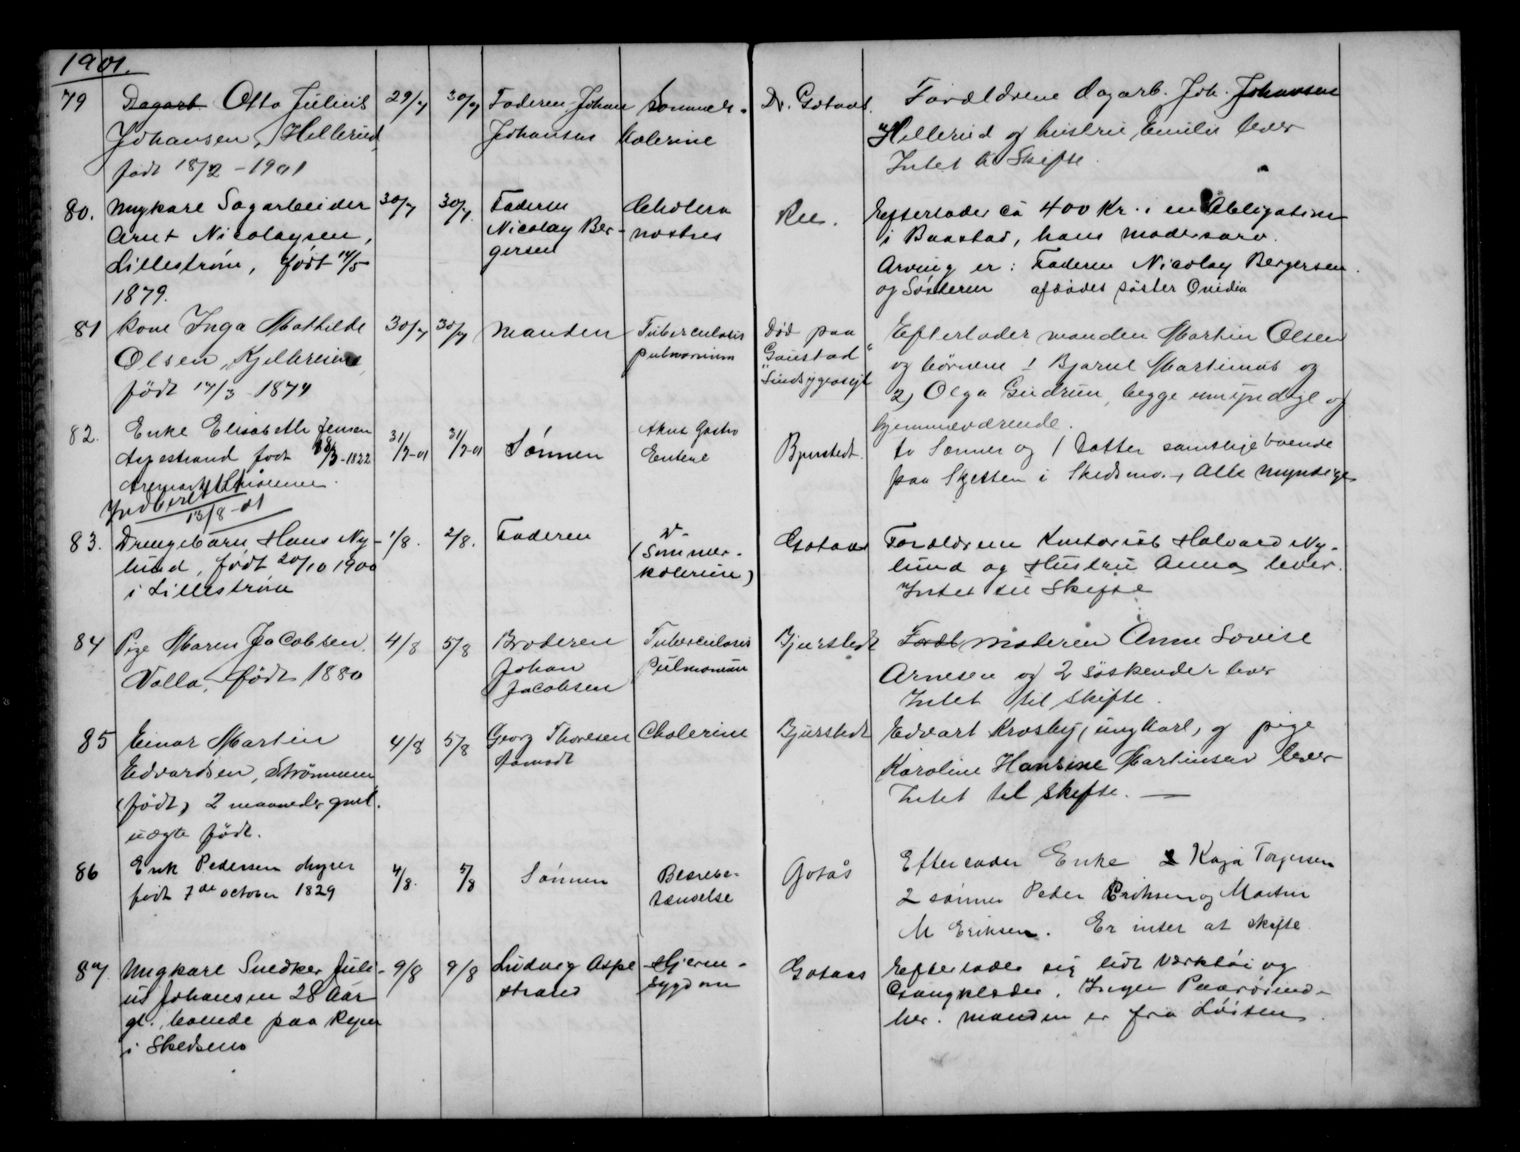 1901.
79 Dagarb. Otto Julius 29/7 30/7 Faderen Johan Sommer- Dr. Gotaas Forældrene dagarb. Joh. Johansen
Johansen, Hellerud, Johansen kolerine Hellerud og hustru Emilie lever
født 18/2 - 1901 Intet til Skifte.
80. Ungkarl Sagarbeider 30/7 30/7. Faderen Cholera Ree. Efterlader ca 400 Kr. i en Obligation
Arnt Nicolaysen, Nicolay Ber- nostras i Baastad, hans modersarv.
Lillestrøm, født 14/5 gersen Arving er: Faderen Nicolay Bergersen
1879. og Søsteren afdødes søster Ovidia
81 Kone Inga Mathilde 30/7 30/7 Manden Tuberculosis Død paa Efterlader manden Martin Olsen
Olsen, Kjelleren pulmonum "Gaustad" og børnene 1 Bjarne Martinus og
født 17/3 1874 Sindsygeasyl 2) Olga Gudrun, begge umyndige og
hjemmeværende.
82. Enke Elisabeth Jensen 31/7-01 31/7-01 Sønnen Akut Gastro Bjurstedt. to Sønner og 1 Datter samtlige boende
Aspestrand født 18/3-1822 Enterie paa Skjetten i Skedsmo. Alle Myndige
Indberettet
13/8-01
83. Drengebarn Hans Ny- 1/8. 2/8. Faderen (Sommer- Gotaas Forældrene Kontorist Halvard Ny-
lund, født 20/10 1900 kolerine) lund og Hustru Anna lever.
i Lillestrøm Intet til Skifte
84 Pige Maren Jacobsen, 4/8 5/8 Broderen Tuberculosis Bjurstedt Foræl Moderen Anne Lovise
Volla, født 1880 Johan Pulmonum Arnesen og 2 søskender lever
Jacobsen Intet til skifte.
85 Einar Martin 4/8 5/8 Georg Thoresen Cholerine Bjurstedt Edvart Krosby, ungkarl, og pige
Edvardsen, Strømmen Karoline Hansine Martinsen lever
(født) 2 maaneder gml. Intet til skifte. —
uægte født.
86 Erik Pedersen 4/8. 5/8 Sønnen Blære- Gotås Efterlader Enke Kaja Torgersen
født 7de october 1829 2 sønner Peder Eriksen og Martin
M Eriksen. Er intet at skifte
87. Ungkarl Snedker Juli- 9/8 9/8 Ludvig Aspe Hjerne- Gotaas Efterlader sig lidt Værktøi og
us Johansen 28 Aar strand sygdom Gangklæder. Ingen Paarørend-
gl. boende paa her. Manden er fra Løiten.
i Skedsmo